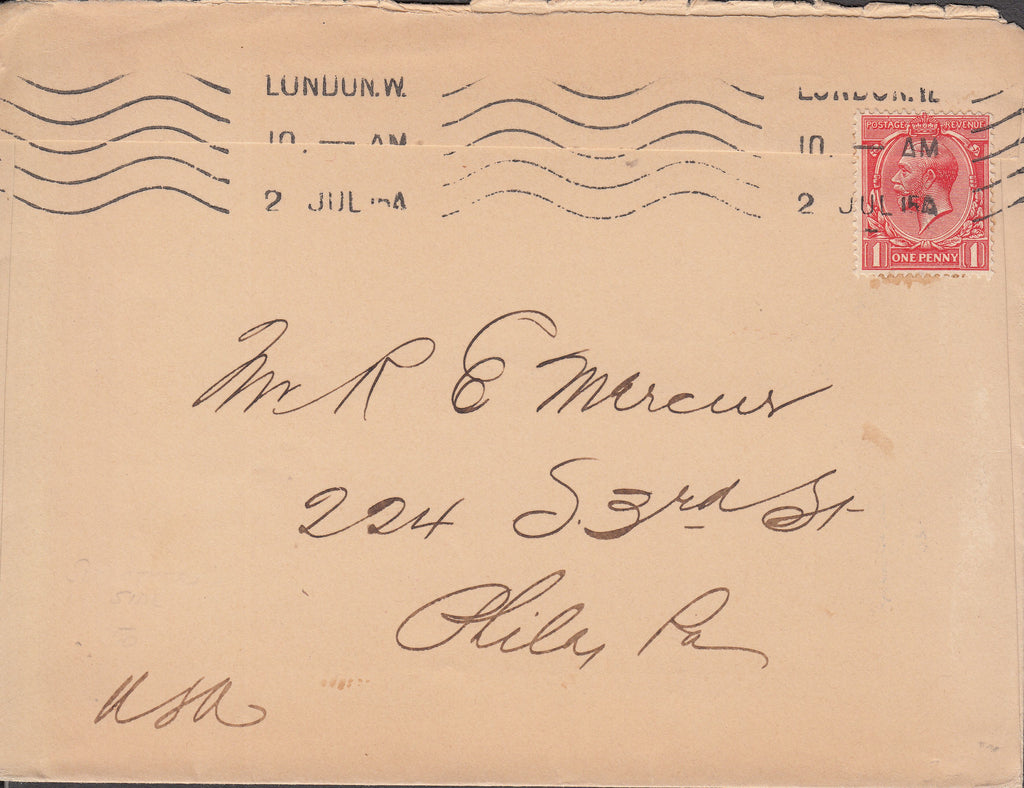 LONDON.W.
10. — AM
2 JUL 15A
LONDON.W.
10. — AM
2 JUL 15A
POSTAGE REVENUE
1 ONE PENNY 1
Mr R E Marcus
224 S. 3rd St
Phila, Pa
USA